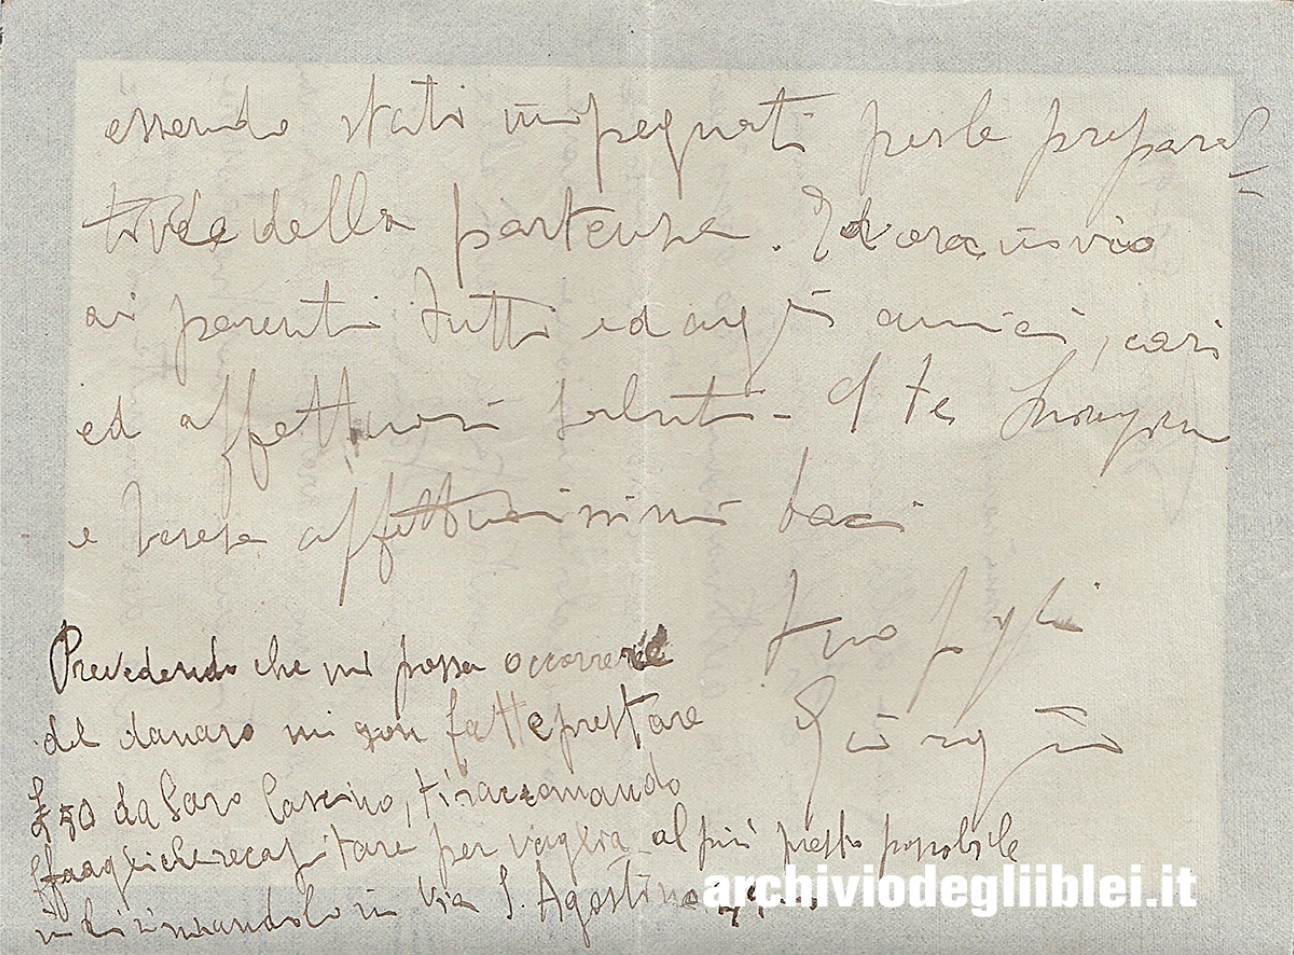 essendo stati impegnati per le prepara-
tive della partenza. Ed ora invio
ai parenti tutti ed agli amici, cari
ed affettuosi saluti - A te
e Teresa affettuosissimi baci
tuo figlio
Giorgio
Prevedendo che mi possa occorrere
del danaro mi son fatte prestare
£ 50 da Saro Cascino, ti raccomando
recapitare per vaglia al più presto possibile
indirizzandolo in Via S. Agostino
archiviodegliiblei.it